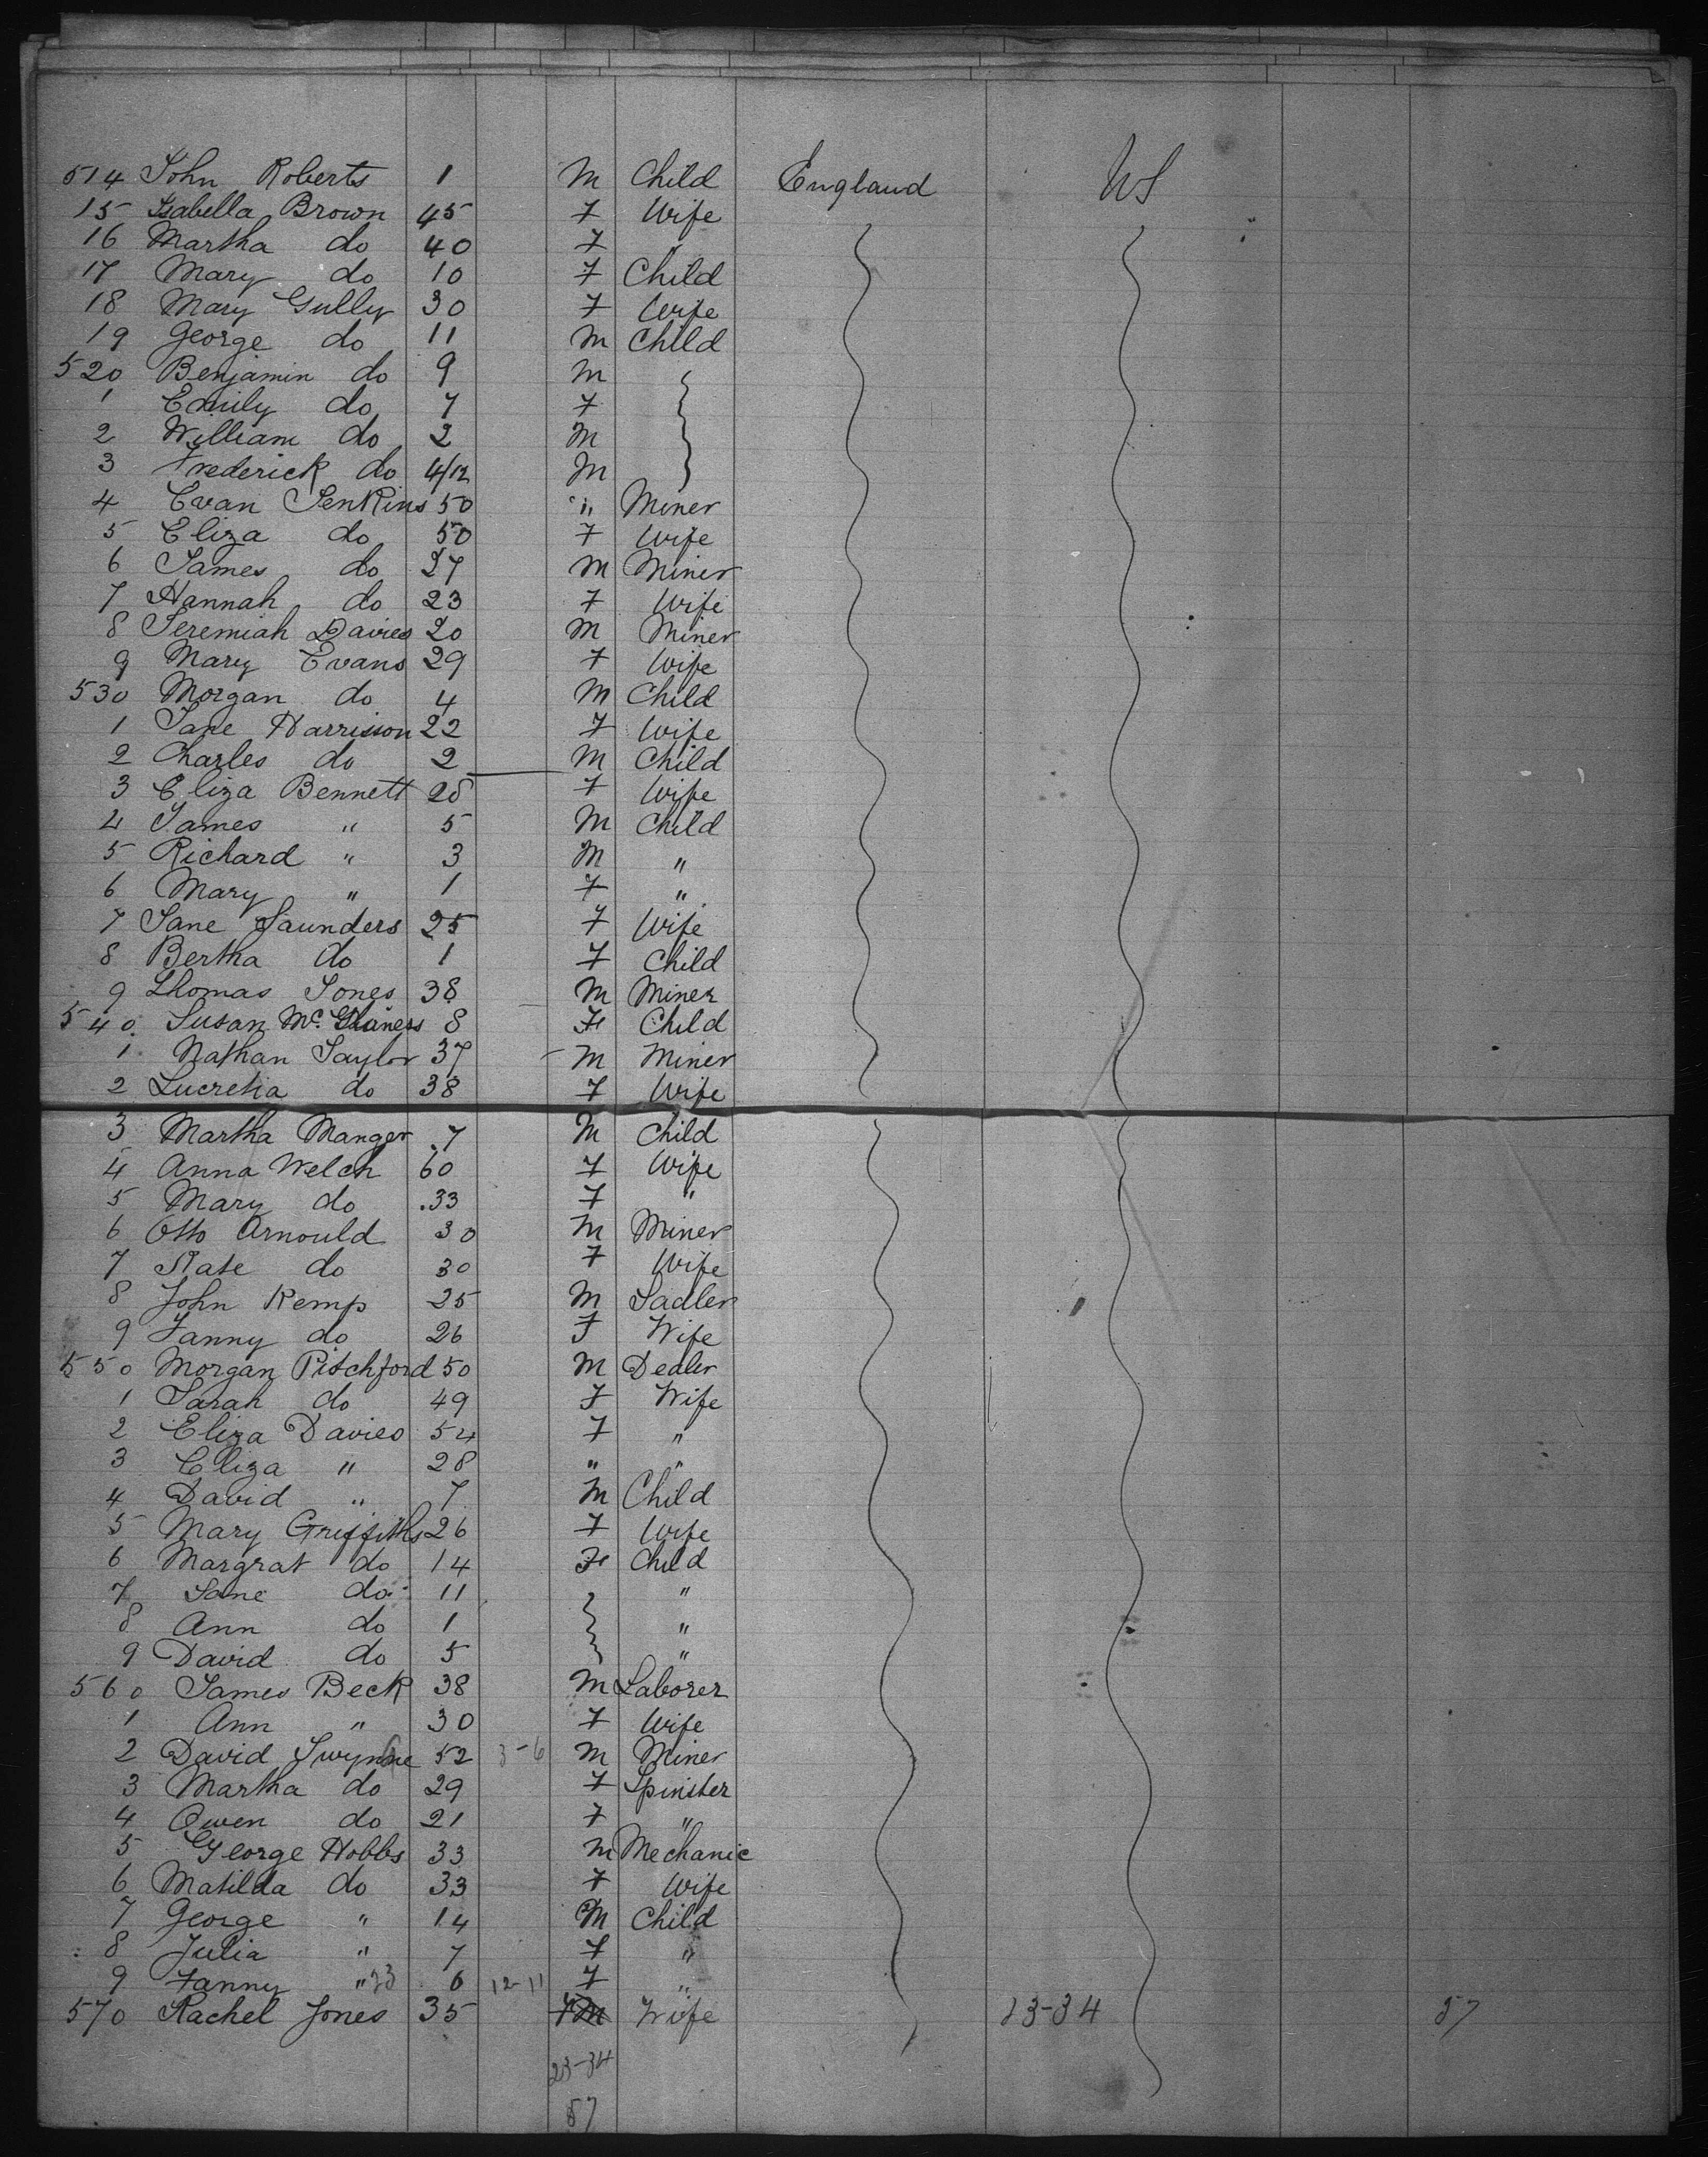 514 John Roberts 1 M Child England US
15 Isabella Brown 45 F Wife
16 Martha do 40 F "
17 Mary do 10 F Child
18 Mary Gully 30 F Wife
19 George do 11 M Child
520 Benjamin do 9 M
1 Emily do 7 F
2 William do 2 M
3 Frederick do 4/12 M
4 Evan Jenkins 50 " Miner
5 Eliza do 50 F Wife
6 James do 27 M Miner
7 Hannah do 23 F Wife
8 Jeremiah Davies 20 M Miner
9 Mary Evans 29 F Wife
530 Morgan do 4 M Child
1 Jane Harrison 22 F Wife
2 Charles do 2 M Child
3 Eliza Bennett 28 F Wife
4 James " 5 M Child
5 Richard " 3 M "
6 Mary " 1 F "
7 Jane Saunders 25 F Wife
8 Bertha do 1 F Child
9 Thomas Jones 38 M Miner
540 Susan Mc 8 F Child
1 Nathan Taylor 37 M Miner
2 Lucretia do 38 F Wife
3 Martha Manger 7 M Child
4 Anna Welch 60 F Wife
5 Mary do 33 F "
6 Otto Arnould 30 M Miner
7 Kate do 30 F Wife
8 John Kemp 25 M Sadler
9 Fanny do 26 F Wife
550 Morgan Pitchford 50 M Dealer
1 Sarah do 49 F Wife
2 Eliza Davies 54 F "
3 Eliza " 28 " "
4 David " 7 M Child
5 Mary Griffiths 26 F Wife
6 Margrat do 14 F Child
7 Jane do 11 "
8 Ann do 1 "
9 David do 5 "
560 James Beck 38 M Laborer
1 Ann " 30 F Wife
2 David 52 3-6 M Miner
3 Martha do 29 F Spinster
4 Owen do 21 F "
5 George Hobbs 33 M Mechanic
6 Matilda do 33 F Wife
7 George " 14 M Child
8 Julia " 7 F "
9 Fanny " 33 6 12-11 F "
570 Rachel Jones 35 F Wife 23-34 57
23-34
57